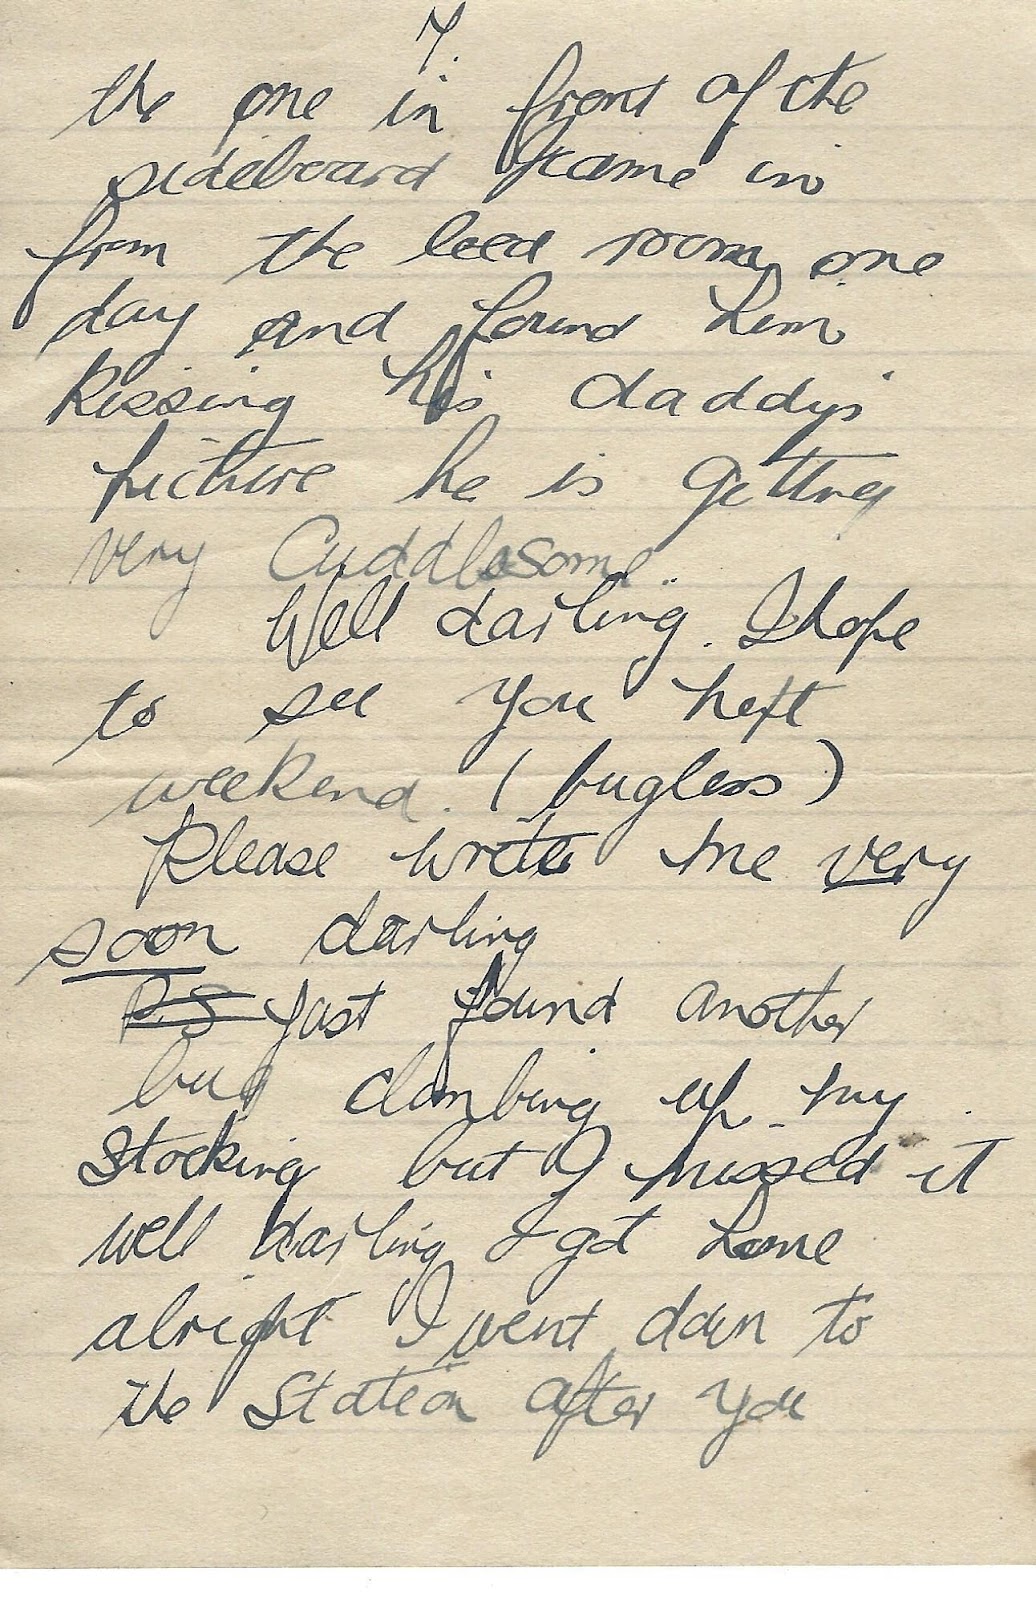 7.
the one in front of the
sideboard I came in
from the bed room one
day and found him
Kissing his daddys
picture he is getting
very Cuddlesome..
Well darling. I hope
to see you next
weekend. (bugless)
Please write me very
soon darling
P.S Just found another
bug climbing up my
Stocking but I missed it
well darling I got home
alright I went down to
the Station after you